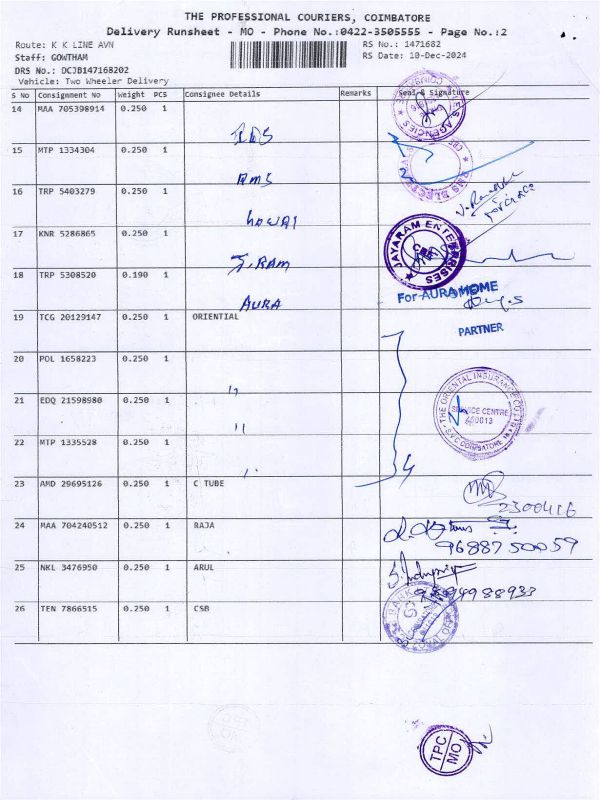 THE PROFESSIONAL COURIERS, COIMBATORE
Delivery Runsheet - MO - Phone No.:0422-3505555 - Page No.:2
Route: K K LINE AVN
RS No.: 1471682
Staff: GOWTHAM
RS Date: 10-Dec-2024
DRS No.: DCJB147168202
Vehicle: Two Wheeler Delivery
S No Consignment No Weight PCS Consignee Details Remarks Seal & Signature
14 MAA 705398914 0.250 1
AGENCIES
15 MTP 1334304 0.250 1
RMS
16 TRP 5403279 0.250 1
17 KNR 5286865 0.250 1
JAYARAM ENTERPRISES
CBE
J.RAM
18 TRP 5308520 0.190 1
AURA
For AURA HOME
19 TCG 20129147 0.250 1 ORIENTIAL
PARTNER
20 POL 1658223 0.250 1
"
21 EDQ 21598980 0.250 1
"
THE ORIENTAL INSURANCE CO
SERVICE CENTRE
S.V.C COIMBATORE
22 MTP 1335528 0.250 1
"
23 AMD 29695126 0.250 1 C TUBE
2300416
24 MAA 704240512 0.250 1 RAJA
9688750059
25 NKL 3476950 0.250 1 ARUL
26 TEN 7866515 0.250 1 CSB
BANK
TPC
MO